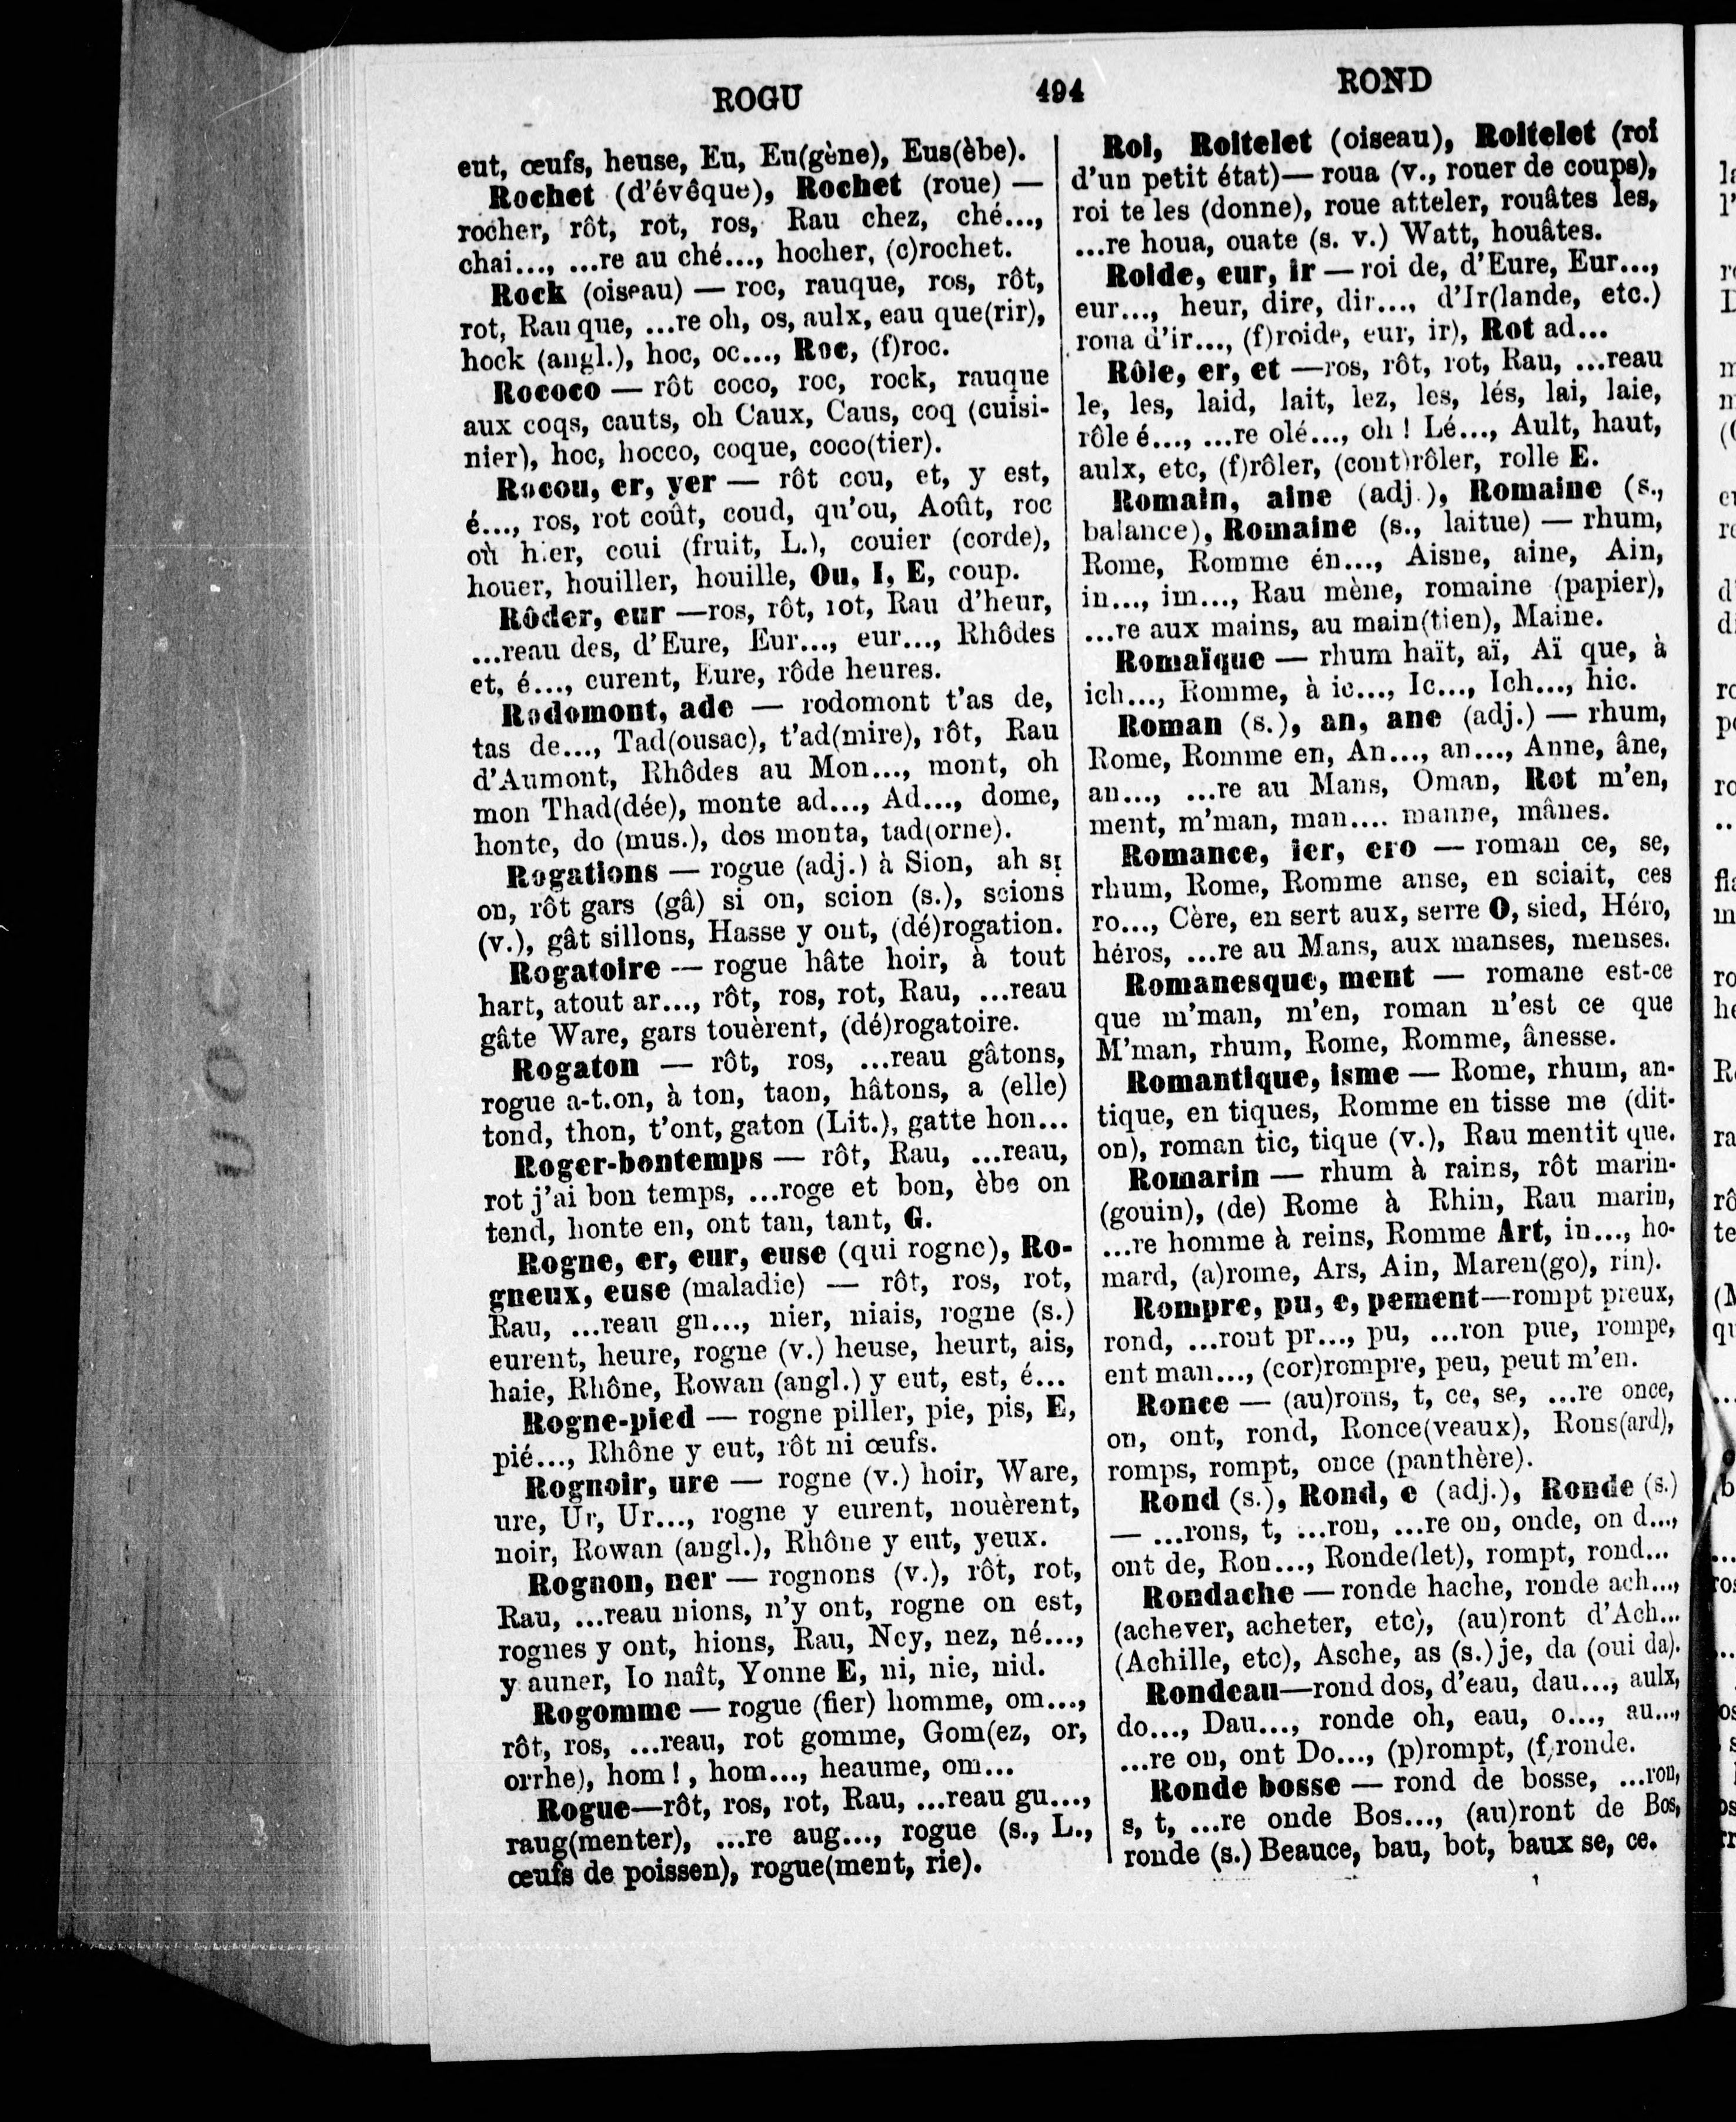 ROGU
494
ROND
eut, œufs, heuse, Eu, Eu(gène), Eus(èbe).
Rochet (d'évêque), Rochet (roue) —
rocher, rôt, rot, ros, Rau chez, ché...,
chai..., ...re au ché..., hocher, (c)rochet.
Rock (oiseau) — roc, rauque, ros, rôt,
rot, Rau que, ...re oh, os, aulx, eau que(rir),
hock (angl.), hoc, oc..., Roc, (f)roc.
Rococo — rôt coco, roc, rock, rauque
aux coqs, cauts, oh Caux, Caus, coq (cuisi-
nier), hoc, hocco, coque, coco(tier).
Rocou, er, yer — rôt cou, et, y est,
é..., ros, rot coût, coud, qu'ou, Août, roc
où hier, coui (fruit, L.), couier (corde),
houer, houiller, houille, Ou, I, E, coup.
Rôder, eur —ros, rôt, rot, Rau d'heur,
...reau des, d'Eure, Eur..., eur..., Rhôdes
et, é..., curent, Eure, rôde heures.
Rodomont, ade — rodomont t'as de,
tas de..., Tad(ousac), t'ad(mire), rôt, Rau
d'Aumont, Rhôdes au Mon..., mont, oh
mon Thad(dée), monte ad..., Ad..., dome,
honte, do (mus.), dos monta, tad(orne).
Rogations — rogue (adj.) à Sion, ah si
on, rôt gars (gâ) si on, scion (s.), scions
(v.), gât sillons, Hasse y ont, (dé)rogation.
Rogatoire — rogue hâte hoir, à tout
hart, atout ar..., rôt, ros, rot, Rau, ...reau
gâte Ware, gars touèrent, (dé)rogatoire.
Rogaton — rôt, ros, ...reau gâtons,
rogue a-t.on, à ton, taon, hâtons, a (elle)
tond, thon, t'ont, gaton (Lit.), gatte hon...
Roger-bontemps — rôt, Rau, ...reau,
rot j'ai bon temps, ...roge et bon, èbe on
tend, honte en, ont tan, tant, G.
Rogne, er, eur, euse (qui rogne), Ro-
gneux, euse (maladie) — rôt, ros, rot,
Rau, ...reau gn..., nier, niais, rogne (s.)
eurent, heure, rogne (v.) heuse, heurt, ais,
haie, Rhône, Rowan (angl.) y eut, est, é...
Rogne-pied — rogne piller, pie, pis, E,
pié..., Rhône y eut, rôt ni œufs.
Rognoir, ure — rogne (v.) hoir, Ware,
ure, Ur, Ur..., rogne y eurent, nouèrent,
noir, Rowan (angl.), Rhône y eut, yeux.
Rognon, ner — rognons (v.), rôt, rot,
Rau, ...reau nions, n'y ont, rogne on est,
rognes y ont, hions, Rau, Ney, nez, né...,
y auner, Io naît, Yonne E, ni, nie, nid.
Rogomme — rogue (fier) homme, om...,
rôt, ros, ...reau, rot gomme, Gom(ez, or,
orrhe), hom!, hom..., heaume, om...
Rogue—rôt, ros, rot, Rau, ...reau gu...,
raug(menter), ...re aug..., rogue (s., L.,
œufs de poissen), rogue(ment, rie).
Roi, Roitelet (oiseau), Roitelet (roi
d'un petit état)— roua (v., rouer de coups),
roi te les (donne), roue atteler, rouâtes les,
...re houa, ouate (s. v.) Watt, houâtes.
Roide, eur, ir — roi de, d'Eure, Eur...,
eur..., heur, dire, dir..., d'Ir(lande, etc.)
roua d'ir..., (f)roide, eur, ir), Rot ad...
Rôle, er, et —ros, rôt, rot, Rau, ...reau
le, les, laid, lait, lez, les, lés, lai, laie,
rôle é..., ...re olé..., oh ! Lé..., Ault, haut,
aulx, etc, (f)rôler, (cont)rôler, rolle E.
Romain, aine (adj.), Romaine (s.,
balance), Romaine (s., laitue) — rhum,
Rome, Romme én..., Aisne, aine, Ain,
in..., im..., Rau mène, romaine (papier),
...re aux mains, au main(tien), Maine.
Romaïque — rhum haït, aï, Aï que, à
ich..., Romme, à ic..., Ic..., Ich..., hic.
Roman (s.), an, ane (adj.) — rhum,
Rome, Romme en, An..., an..., Anne, âne,
an..., ...re au Mans, Oman, Rot m'en,
ment, m'man, man.... manne, mânes.
Romance, ier, ero — roman ce, se,
rhum, Rome, Romme anse, en sciait, ces
ro..., Cère, en sert aux, serre O, sied, Héro,
héros, ...re au Mans, aux manses, menses.
Romanesque, ment — romane est-ce
que m'man, m'en, roman n'est ce que
M'man, rhum, Rome, Romme, ânesse.
Romantique, isme — Rome, rhum, an-
tique, en tiques, Romme en tisse me (dit-
on), roman tic, tique (v.), Rau mentit que.
Romarin — rhum à rains, rôt marin-
(gouin), (de) Rome à Rhin, Rau marin,
...re homme à reins, Romme Art, in..., ho-
mard, (a)rome, Ars, Ain, Maren(go), rin).
Rompre, pu, e, pement—rompt preux,
rond, ...rout pr..., pu, ...ron pue, rompe,
ent man..., (cor)rompre, peu, peut m'en.
Ronce — (au)rons, t, ce, se, ...re once,
on, ont, rond, Ronce(veaux), Rons(ard),
romps, rompt, once (panthère).
Rond (s.), Rond, e (adj.), Ronde (s.)
— ...rons, t, ...ron, ...re on, onde, on d...,
ont de, Ron..., Ronde(let), rompt, rond...
Rondache — ronde hache, ronde ach...,
(achever, acheter, etc), (au)ront d'Ach...
(Achille, etc), Asche, as (s.) je, da (oui da).
Rondeau—rond dos, d'eau, dau..., aulx,
do..., Dau..., ronde oh, eau, o..., au...,
...re on, ont Do..., (p)rompt, (f)ronde.
Ronde bosse — rond de bosse, ...ron,
s, t, ...re onde Bos..., (au)ront de Bos,
ronde (s.) Beauce, bau, bot, baux se, ce.